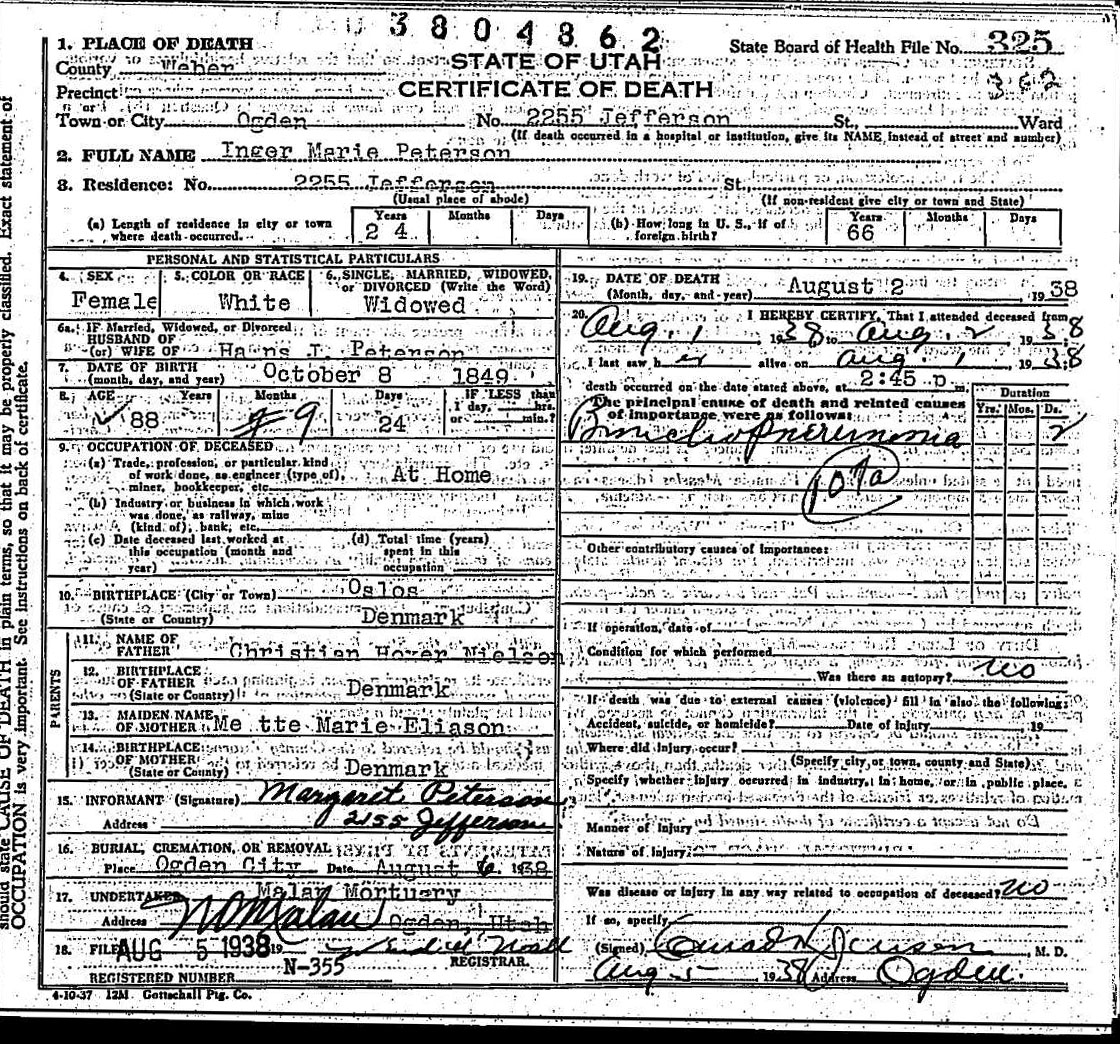 3804862
1. PLACE OF DEATH
State Board of Health File No. 325
County Weber
STATE OF UTAH
362
Precinct
CERTIFICATE OF DEATH
or
Town or City Ogden No. 2255 Jefferson St., Ward
(If death occurred in a hospital or institution, give its NAME instead of street and number)
2. FULL NAME Inger Marie Peterson
3. Residence: No. 2255 Jefferson St.
(Usual place of abode) (If non-resident give city or town and State)
(a) Length of residence in city or town where death occurred. Years 24 Months Days
(b) How long in U. S., if of foreign birth? Years 66 Months Days
PERSONAL AND STATISTICAL PARTICULARS
4. SEX Female
5. COLOR OR RACE White
6. SINGLE, MARRIED, WIDOWED, or DIVORCED (Write the Word) Widowed
6a. IF Married, Widowed, or Divorced
HUSBAND OF
(or) WIFE OF Hanns J. Peterson
7. DATE OF BIRTH
(month, day, and year) October 8 1849
8. AGE Years 88 Months 9 Days 24 IF LESS than 1 day, hrs. or min.?
9. OCCUPATION OF DECEASED
(a) Trade, profession, or particular kind
of work done, as engineer (type of),
miner, bookkeeper, etc. At Home
(b) Industry or business in which work
was done, as railway, mine
(kind of), bank, etc.
(c) Date deceased last worked at
this occupation (month and
year)
(d) Total time (years)
spent in this
occupation
10. BIRTHPLACE (City or Town) Oslos
(State or Country) Denmark
PARENTS
11. NAME OF
FATHER Christian Hover Nielson
12. BIRTHPLACE
OF FATHER
(State or Country) Denmark
13. MAIDEN NAME
OF MOTHER Me tte Marie Eliason
14. BIRTHPLACE
OF MOTHER
(State or County) Denmark
15. INFORMANT (Signature) Margaret Peterson
Address 2155 Jefferson
16. BURIAL, CREMATION, OR REMOVAL
Place Ogden City Date August 6 1938
17. UNDERTAKER Malan Mortuary
Address Ogden, Utah
18. FILED AUG 5 1938 19
REGISTRAR.
N-355
REGISTERED NUMBER
4-10-37 12M Gottschall Ptg. Co.
19. DATE OF DEATH
(Month, day, and year) August 2, 1938
20. I HEREBY CERTIFY, That I attended deceased from
Aug. 1 1938 to Aug. 2 1938
I last saw her alive on Aug 1 1938
death occurred on the date stated above, at 2:45 p m.
The principal cause of death and related causes
of importance were as follows:
Duration
Yrs. Mos. Ds.
Bronchopneumonia 2
107a
Other contributory causes of importance:
If operation, date of
Condition for which performed
Was there an autopsy? no
If death was due to external causes (violence) fill in also the following:
Accident, suicide, or homicide? Date of Injury 19
Where did injury occur?
(Specify city or town, county and State)
Specify whether injury occurred in industry, in home, or in public place.
Manner of Injury
Nature of injury:
Was disease or injury in any way related to occupation of deceased? no
If so, specify
(Signed) Conrad H Jensen, M. D.
Aug 5 1938 Address Ogden.
should state CAUSE OF DEATH in plain terms, so that it may be properly classified. Exact statement of
OCCUPATION is very important. See instructions on back of certificate.